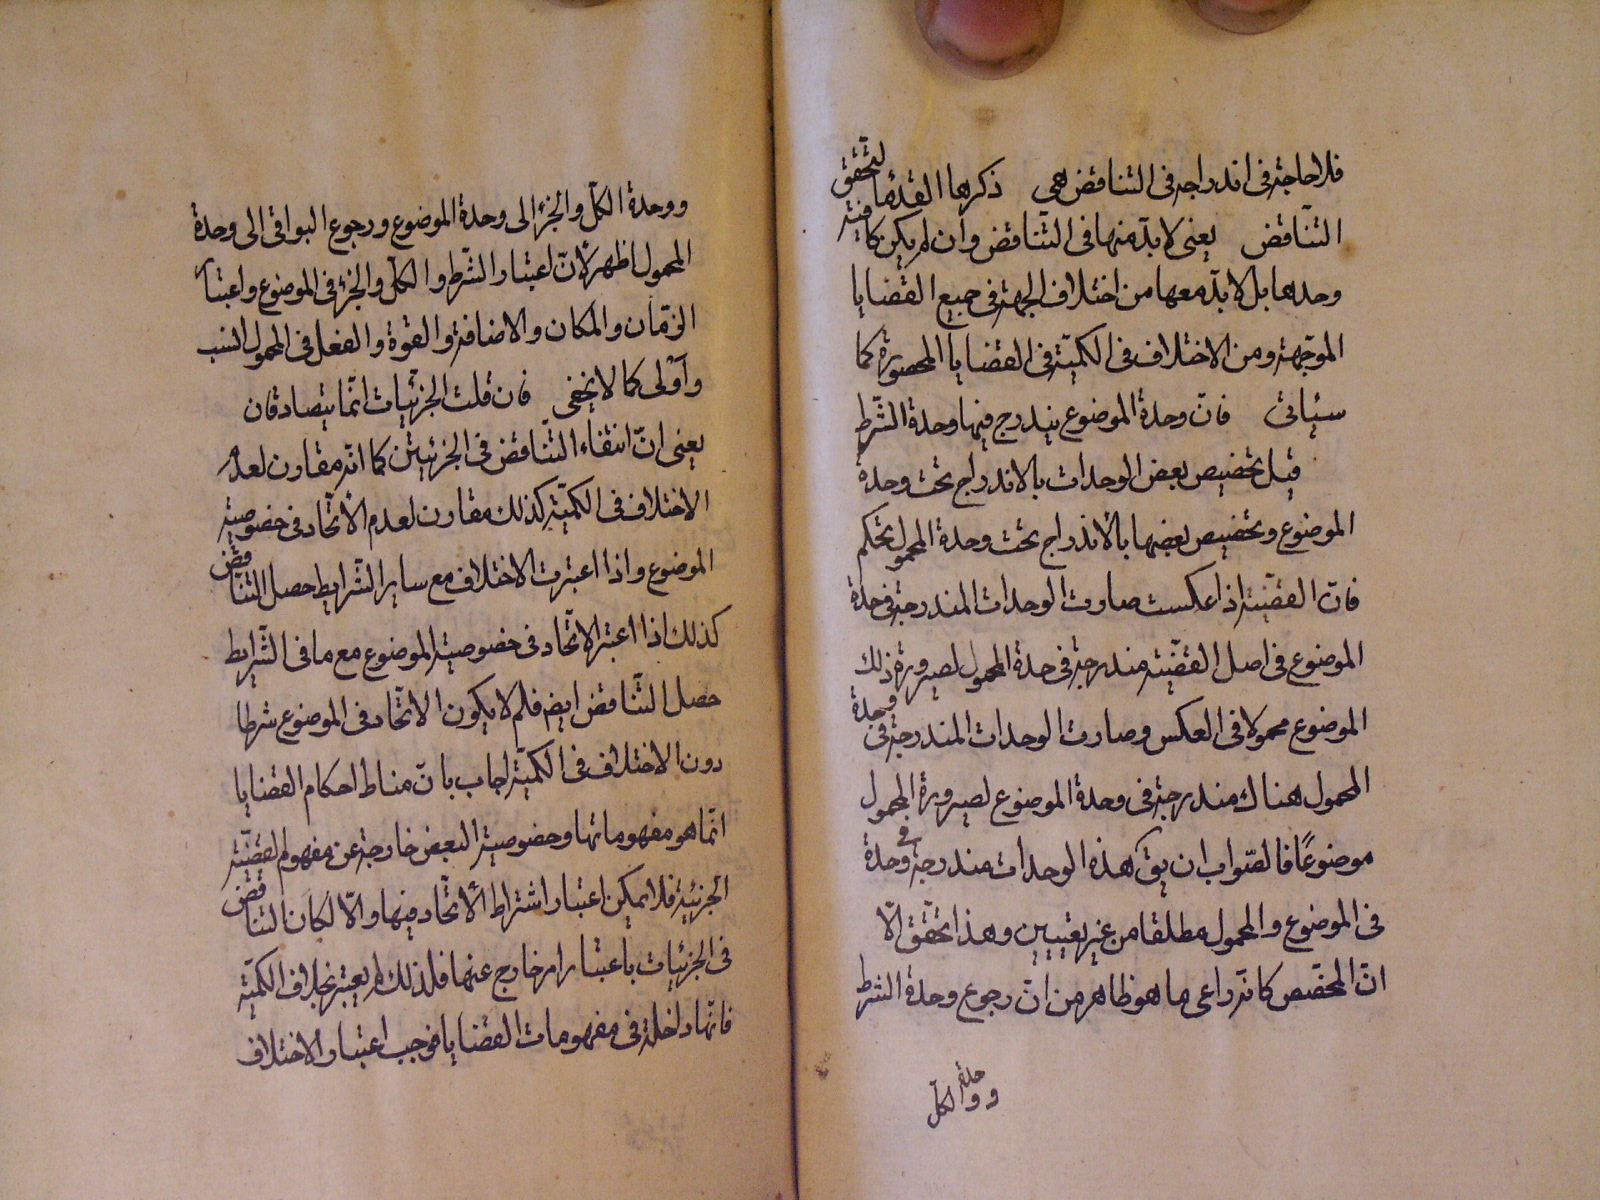 فلا حاجة فى اندراجه فى التناقض هى ذكرها القدماء لتحقق
التناقض يعنى لا بدّ منها فى التّناقض وان لم يكن كافية
وحدها بل لا بدّ معها من اختلاف الجهة فى جميع القضايا
الموجّهة ومن الاختلاف فى الكميّة فى القضايا المحصورة كما
سيأتى فانّ وحدة الموضوع يندرج فيها وحدة الشّرط
قيل تخصيص بعض الوحدات بالاندراج تحت وحدة
الموضوع وتخصيص بعضها بالاندراج تحت وحدة المحمول تحكم
فانّ القضّية اذا عكست صارت الوحدات المندرجة فى وحدة
الموضوع فى اصل القضّية مندرجة فى وحدة المحمول لصيرورة ذلك
الموضوع محمولا فى العكس وصارت الوحدات المندرجة فى وحدة
المحمول هناك مندرجة فى وحدة الموضوع لصيرورة المحمول
موضوعًا فالصّواب ان يق هذه الوحدات مندرجة فى وحدة
فى الموضوع والمحمول مطلقا من غير تعيين وهذا تحقّق الّا
انّ المخصّص كانّه راعى ما هو ظاهر من انّ رجوع وحدة الشرط
ووحدة الكلّ
ووحدة الكلّ والجزء الى وحدة الموضوع ورجوع البواقى الى وحدة
المحمول اظهر لأنّ اعتبار الشّرط والكلّ والجزء فى الموضوع واعتبار
الزمان والمكان والاضافة والقوة والفعل فى المحمول انسب
واولى كما لا يخفى فان قلت الجزئيات انّما يتصادقان
يعنى انّ انتفاء التّناقض فى الجزئيتين كما انّه مقارن لعدم
الاختلاف فى الكميّة كذلك مقارن لعدم الاتّحاد فى خصوصية
الموضوع واذا اعتبرت الاختلاف مع ساير الشّرايط حصل التناقض
كذلك اذا اعتبر الاتّحاد فى خصوصية الموضوع مع ما فى الشّرايط
حصل التّناقض ايضا فلم لا يكون الاتّحاد فى الموضوع شرطا
دون الاختلاف فى الكميّة اجاب بانّ مناط احكام القضايا
انّما هو مفهوماتها وخصوصية البعض خارجة عن مفهوم القضّية
الجزئية فلا يمكن اعتبار اشتراط الأتّحاد فيها والّا لكان التناقض
فى الجزئيات باعتبار امر خارج عنها فلذلك لم يعتبر بخلاف الكميّة
فانّها داخلة فى مفهومات القضايا فوجب اعتبار الاختلاف